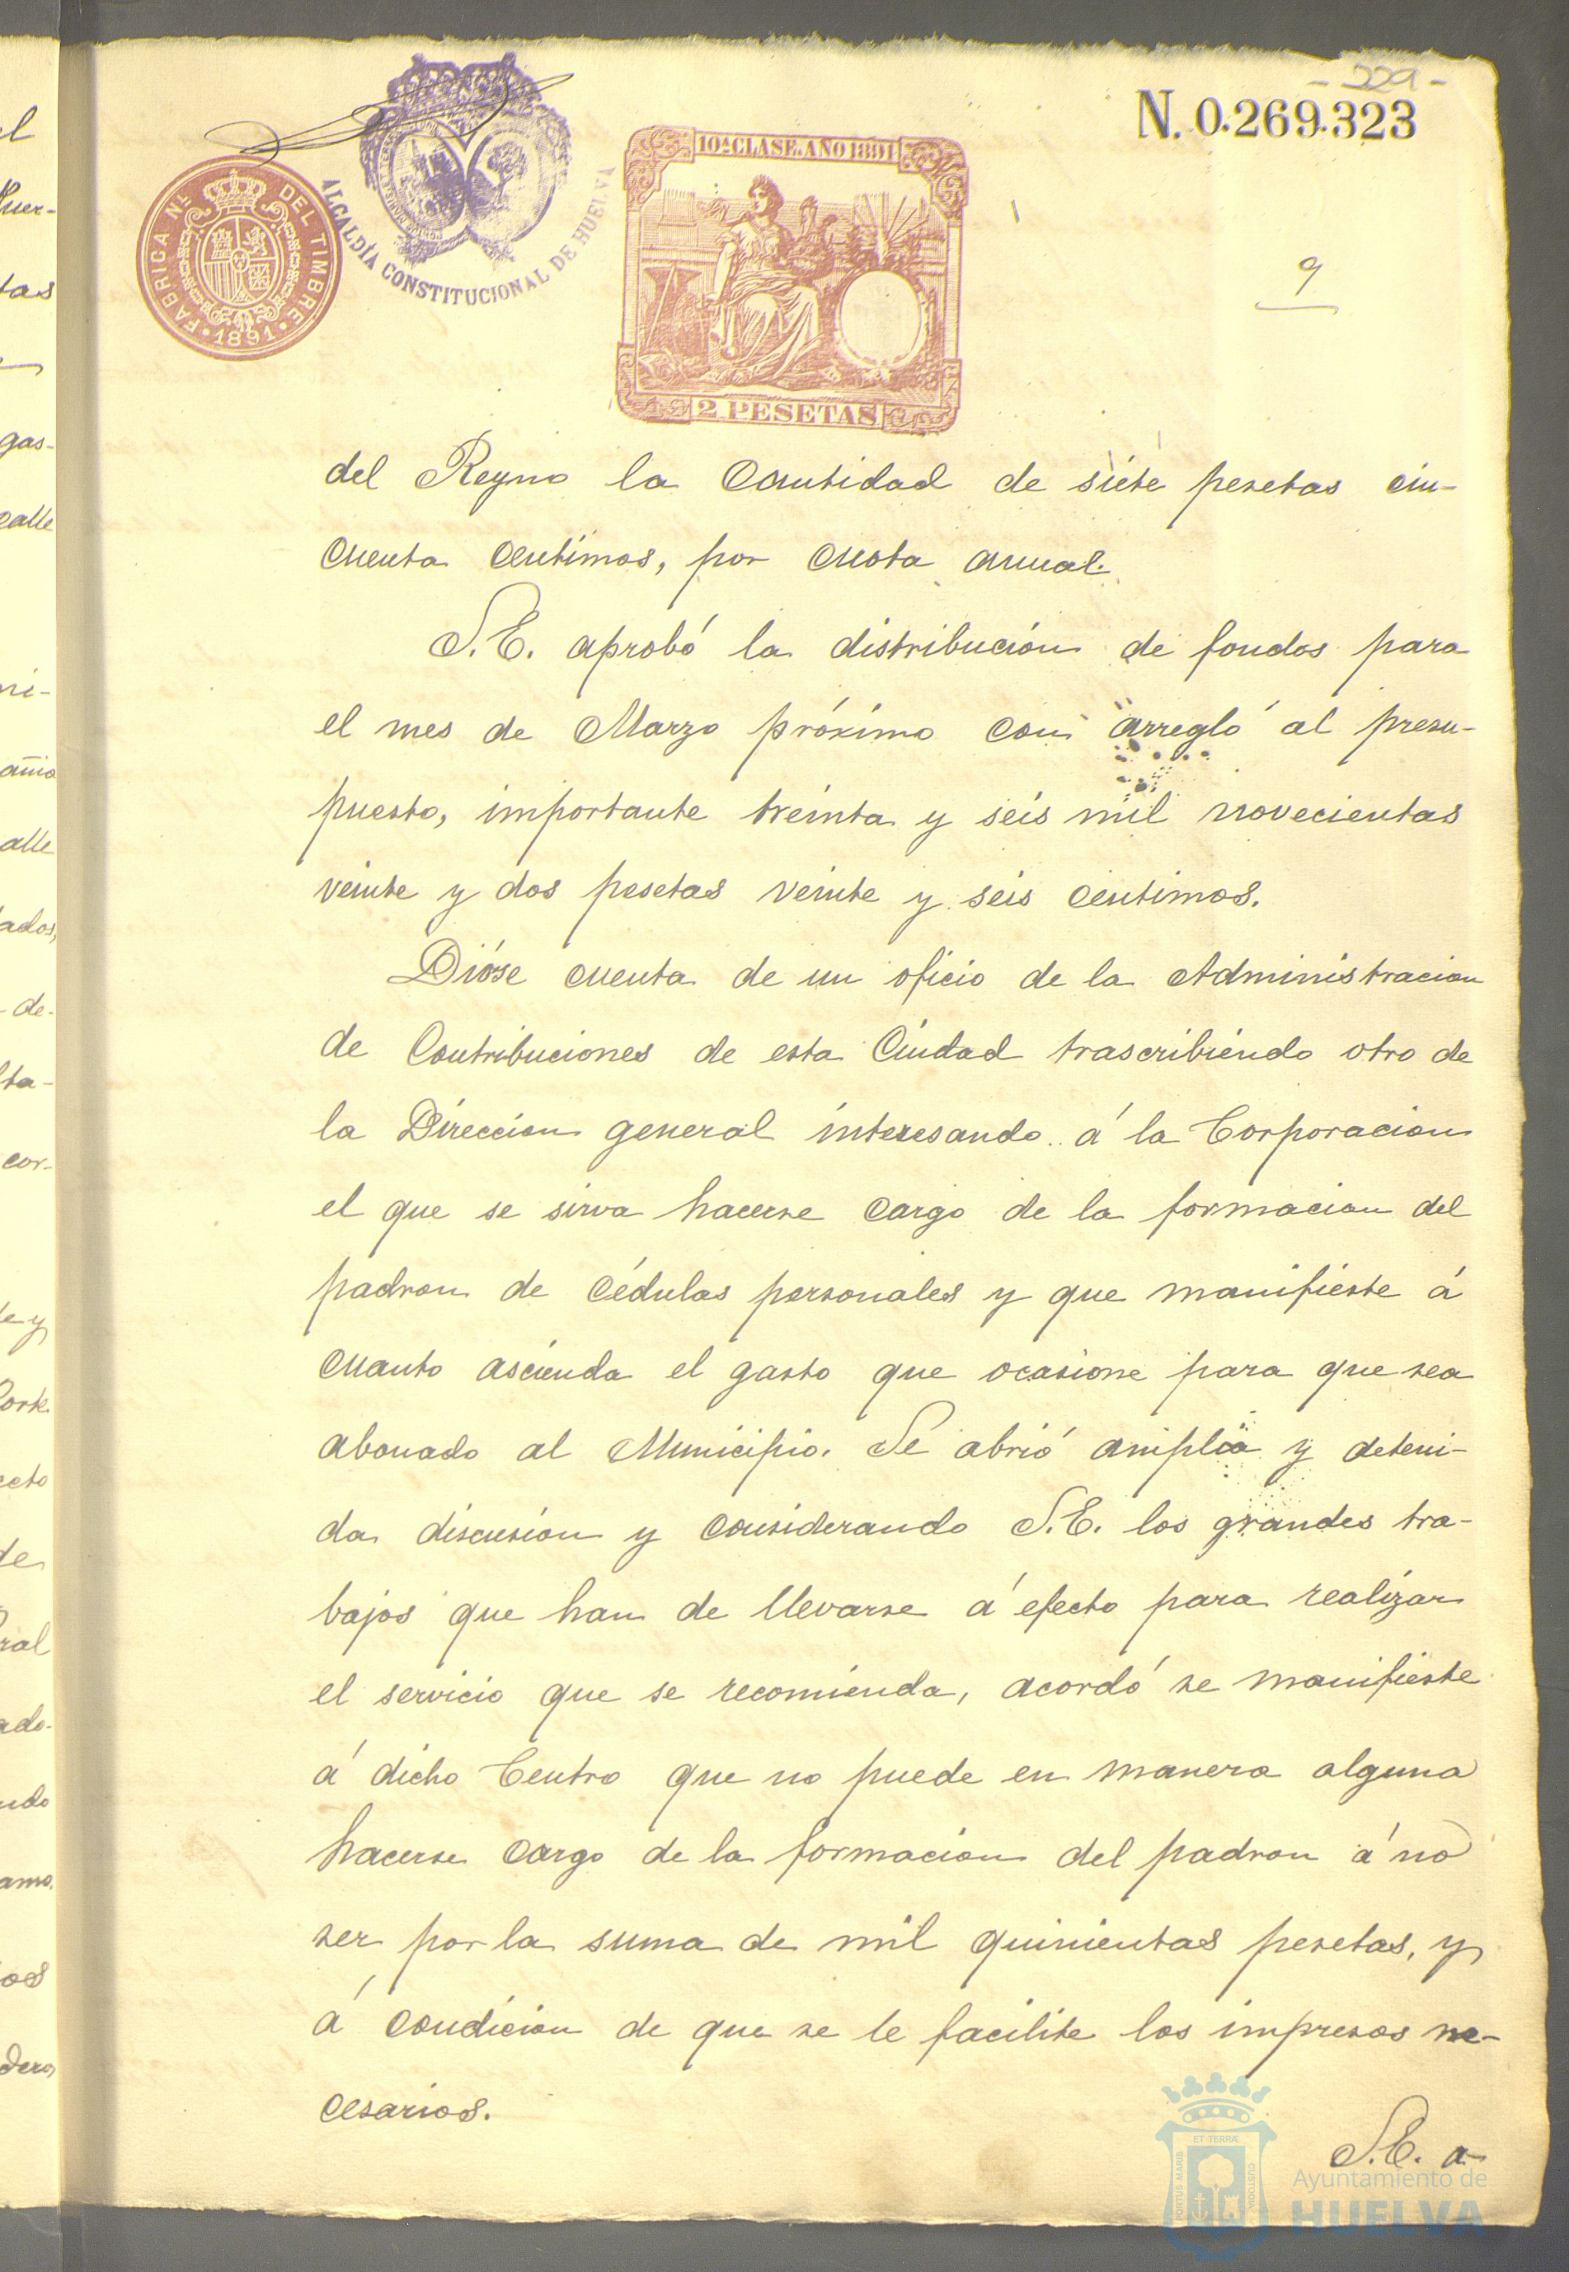 - 229 -
N. 0.269.323
FABRICA Nᴸ DEL TIMBRE
1891
ALCALDÍA CONSTITUCIONAL DE HUELVA
10ª CLASE. AÑO 1891
2 PESETAS
9
del Reyno la Cantidad de siete pesetas cin-
cuenta centimos, por cuota anual.
S.E. aprobó la distribución de fondos para
el mes de Marzo próximo con arreglo al presu-
puesto, importante treinta y seis mil novecientas
veinte y dos pesetas veinte y seis centimos.
Dióse cuenta de un oficio de la Administracion
de Contribuciones de esta Ciudad trascribiendo otro de
la Direccion general interesando á la Corporacion
el que se sirva hacerse cargo de la formacion del
padron de cédulas personales y que manifieste á
cuanto ascienda el gasto que ocasione para que sea
abonado al Municipio. Se abrió amplia y deteni-
da discusion y considerando S.E. los grandes tra-
bajos que han de llevarse á efecto para realizar
el servicio que se recomienda, acordó se manifieste
á dicho Centro que no puede en manera alguna
hacerse cargo de la formacion del padron á no
ser por la suma de mil quinientas pesetas, y
á condicion de que se le facilite los impresos ne-
cesarios.
S.E. a-
PORTUS MARIS ET TERRÆ CUSTODIA
Ayuntamiento de
HUELVA